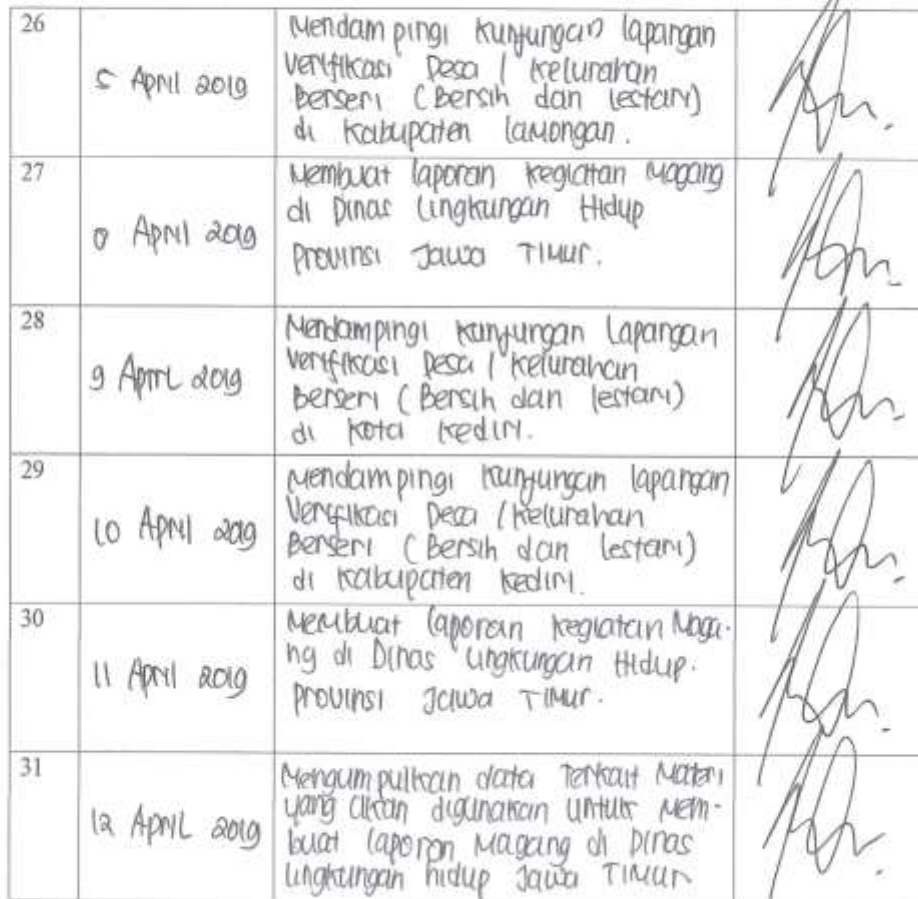 26
5 April 2019
Mendampingi kunjungan lapangan
Verifikasi Desa / Kelurahan
Berseri (Bersih dan lestari)
di Kabupaten Lamongan.
27
8 April 2019
Membuat laporan kegiatan Magang
di Dinas Lingkungan Hidup
Provinsi Jawa Timur.
28
9 April 2019
Mendampingi kunjungan Lapangan
Verifikasi Desa / Kelurahan
Berseri (Bersih dan lestari)
di Kota Kediri.
29
10 April 2019
Mendampingi kunjungan lapangan
Verifikasi Desa / Kelurahan
Berseri (Bersih dan lestari)
di Kabupaten Kediri.
30
11 April 2019
Membuat laporan kegiatan Maga-
ng di Dinas Lingkungan Hidup.
Provinsi Jawa Timur.
31
12 April 2019
Mengumpulkan data terkait Materi
yang akan digunakan untuk Mem-
buat laporan Magang di Dinas
Lingkungan hidup Jawa Timur